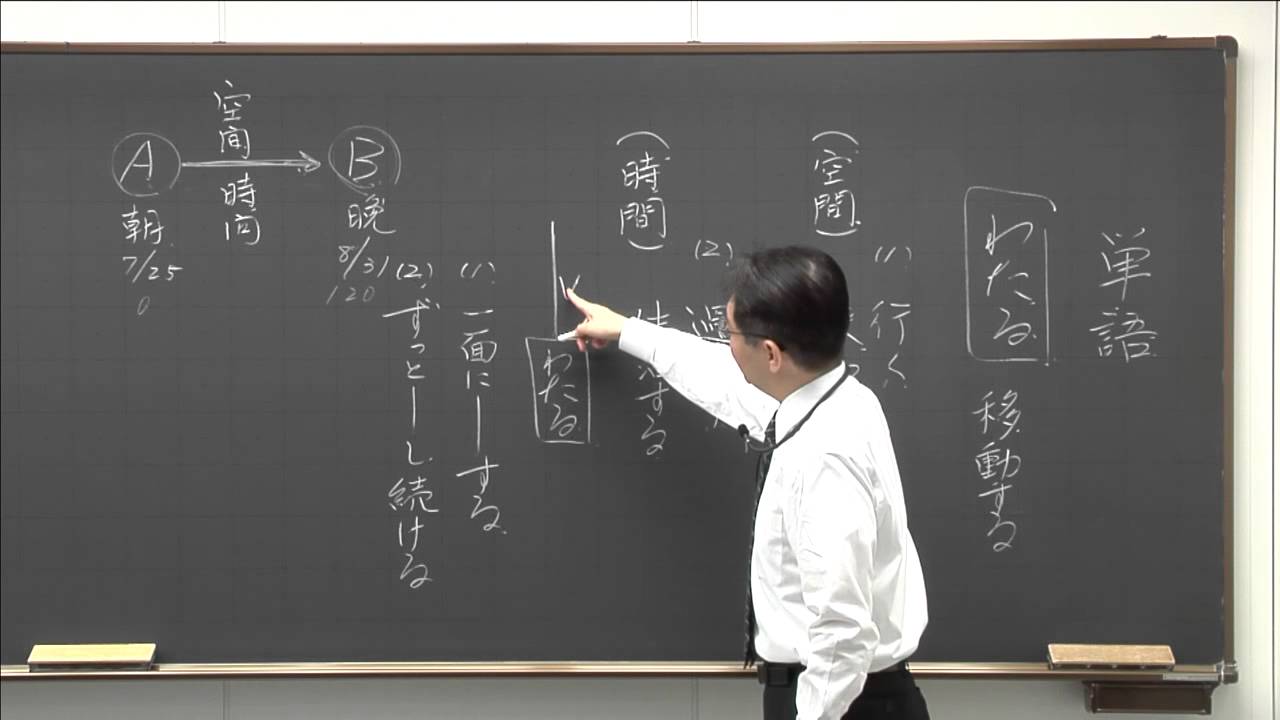 単語
わたる
移動する
(空間)
(1)
行く
(2)
過
(時間)
する
V
わたる
(1) 一面に―する
(2) ずっと―し続ける
空間
A
B
時間
朝
晩
7/25
8/31
0
120